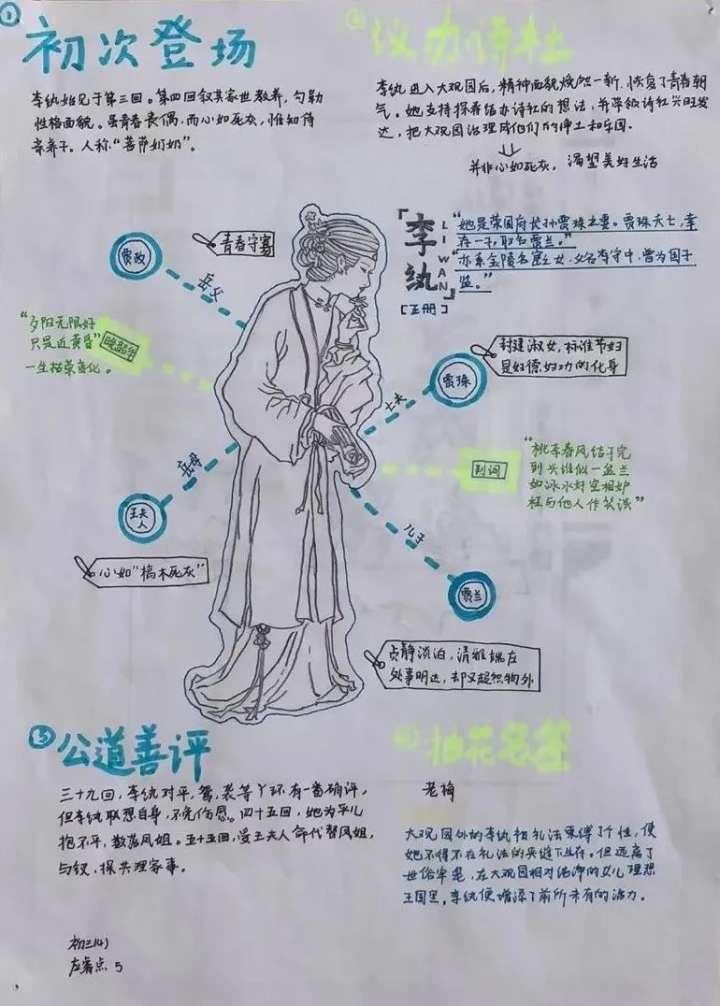 ①
初次登场
李纨始见于第三回。第四回叙其家世教养，勾勒
性格面貌。虽青春丧偶，而心如死灰，惟知侍
亲养子。人称“菩萨奶奶”。
②
议办诗社
李纨进入大观园后，精神面貌焕然一新，恢复了青春朝
气。她支持探春结办诗社的想法，并带领诗社兴旺发
达，把大观园治理成他们的净土和乐园。
并非心如死灰，渴望美好生活
「李纨」
LI WAN
[正册]
“她是荣国府长孙贾珠之妻。贾珠夭亡，幸
存一子，取名贾兰。”
“亦系金陵名宦之女，父名李守中，曾为国子
监。”
贾政
岳父
青春守寡
“夕阳无限好
只是近黄昏”
一生枯荣变化。
晚韶华
封建淑女，标准节妇
是妇德，妇功的化身
贾珠
丈夫
岳母
王夫人
判词
“桃李春风结子完
到头谁似一盆兰
如冰水好空相妒
枉与他人作笑谈”
儿子
贾兰
心如“槁木死灰”
贞静淡泊，清雅端庄
处事明达，却又超然物外
③
公道善评
三十九回，李纨对平，鸳，袭等丫环有一番确评，
但李纨联想自身，不免伤感。四十五回，她为平儿
抱不平，数落凤姐。五十五回，受王夫人命代替凤姐，
与钗，探共理家事。
抽花名签
老梅
大观园外的李纨和礼法束缚了个性，使
她不得不在礼法的夹缝下生存。但远离了
世俗牢笼，在大观园相对洁净的女儿理想
王国里，李纨便增添了前所未有的活力。
初三(4)
5